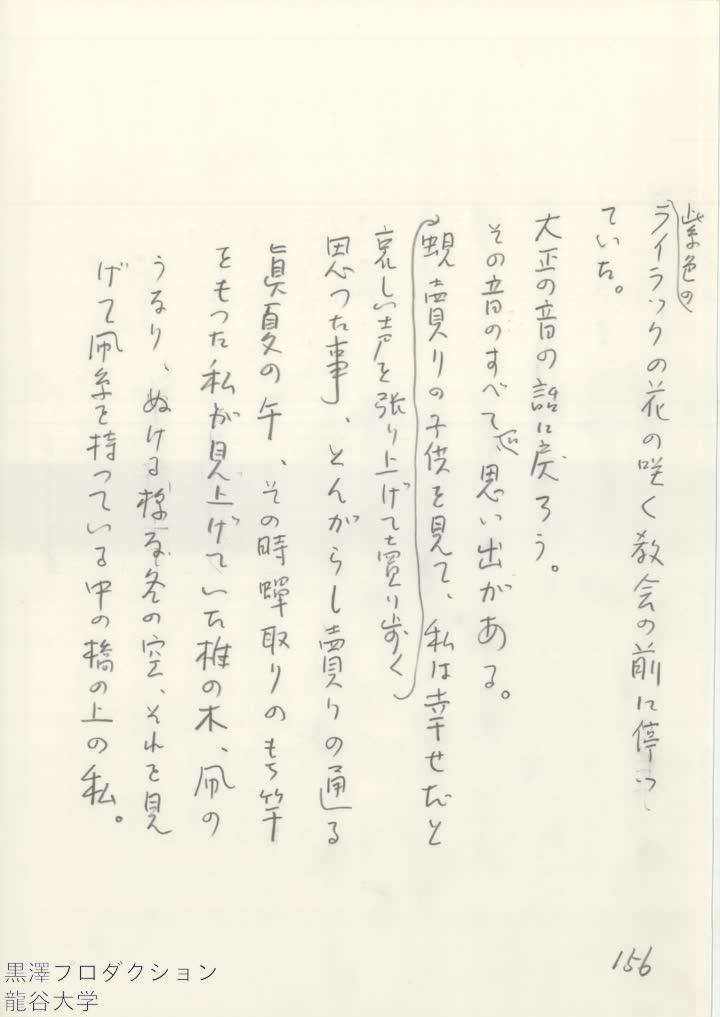 紫色の
ライラックの花の咲く教会の前に停っ
ていた。
大正の音の話に戻ろう。
その音のすべてに思い出がある。
蜆売りの子供を見て、私は幸せだと
哀しい声を張り上げて売り歩く
思つた事、とんがらし売りの通る
真夏の午、その時蟬取りのもち竿
をもつた私が見上げていた椎の木、凧の
うなり、ぬける様な冬の空、それを見
げて凧糸を持っている中の橋の上の私。
156
黒澤プロダクション
龍谷大学